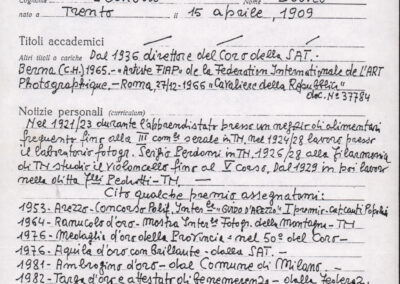 Cognome Nome
nato a Trento il 15 aprile, 1909
Titoli accademici
Altri titoli e cariche Dal 1936 direttore del Coro della SAT.-
Berna (C.H.) 1965.- "Artiste FIAP" de la Federation Internationale de l'ART
Photographique.- Roma, 27/12-1966 "Cavaliere della Repubblica"
doc. N° 37784
Notizie personali (curriculum)
Nel 1921/23 durante l'apprendistato presso un negozio di alimentari
frequento fino alla III com^le serale in TN, nel 1924/28 lavoro presso
il laboratorio fotogr. Sergio Perdomi in TN, 1926/28 alla Filarmonia
di TN studio il violoncello fino al V Corso, Dal 1929 in poi lavoro
nella ditta F^lli Pedrotti - TN -
Cito qualche premio assegnatomi:
1953 - Arezzo - Concorso Polif. Inter^le "GUIDO D'AREZZO" I premio - canti Popolari
1964 - Ramuscolo d'oro - mostra Inter^le Fotogr. della Montagna - TN
1976 - Medaglia d'oro della Provincia = nel 50° del Coro -
1976 - Aquila d'oro con Brillante - della SAT. -
1981 - Ambrogino d'oro - dal Comune di Milano. -
1982 - Targa d'oro e attestato di benemerenza - dalla Federaz.